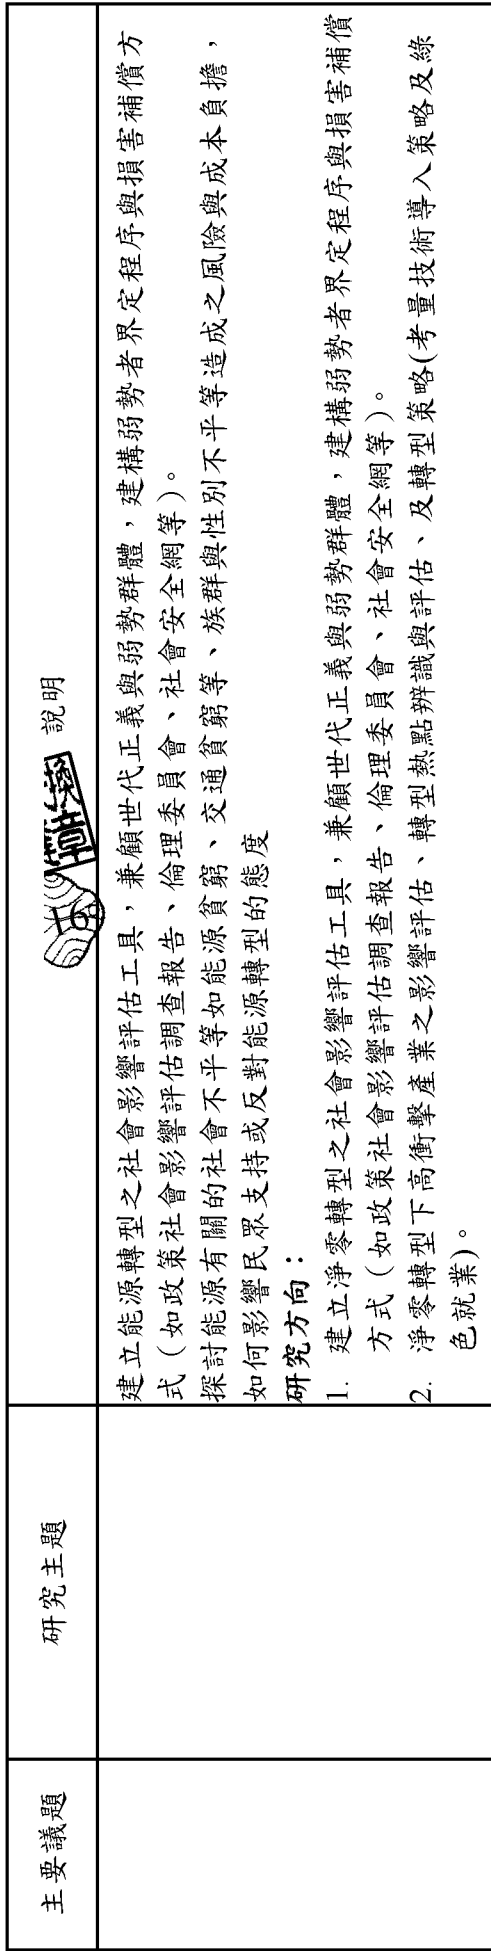 主要議題
研究主題
說明
建立能源轉型之社會影響評估工具，兼顧世代正義與弱勢群體，建構弱勢者界定程序與損害補償方
式（如政策社會影響評估調查報告、倫理委員會、社會安全網等）。
探討能源有關的社會不平等如能源貧窮、交通貧窮等、族群與性別不平等造成之風險與成本負擔，
如何影響民眾支持或反對能源轉型的態度
研究方向：
1. 建立淨零轉型之社會影響評估工具，兼顧世代正義與弱勢群體，建構弱勢者界定程序與損害補償
方式（如政策社會影響評估調查報告、倫理委員會、社會安全網等）。
2. 淨零轉型下高衝擊產業之影響評估、轉型熱點辨識與評估、及轉型策略(考量技術導入策略及綠
色就業)。